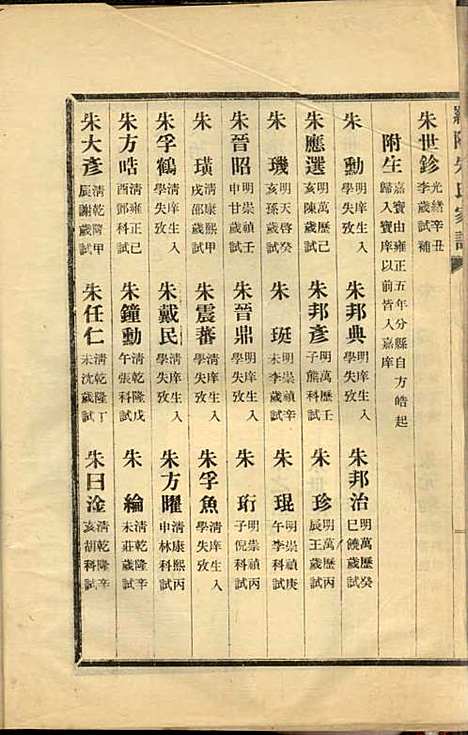 朱世鉁 光緒辛丑李歲試補
附生 嘉寶由雍正五年分縣自方皓起歸入寶庠以前皆入嘉庠
朱勳 明庠生入學失攷
朱邦典 明庠生入學失攷
朱邦治 明萬歷癸巳饒歲試
朱應選 明萬歷己亥陳歲試
朱邦彥 明萬歷壬子熊科試
朱珍 明萬歷丙辰王歲試
朱璣 明天啓癸亥孫歲試
朱珽 明崇禎辛未李歲試
朱琨 明崇禎庚午李科試
朱晉昭 明崇禎壬申甘歲試
朱晉鼎 明庠生入學失攷
朱珩 明崇禎丙子倪科試
朱璜 清康熙甲戌邵歲試
朱震蕃 清庠生入學失攷
朱孚魚 清庠生入學失攷
朱孚鶴 清庠生入學失攷
朱戴民 清庠生入學失攷
朱方曜 清康熙丙申林科試
朱方晧 清雍正己酉鄧科試
朱鐘勳 清乾隆戊午張科試
朱綸 清乾隆辛未莊歲試
朱大彥 清乾隆甲辰謝歲試
朱任仁 清乾隆丁未沈歲試
朱日淦 清乾隆辛亥胡科試